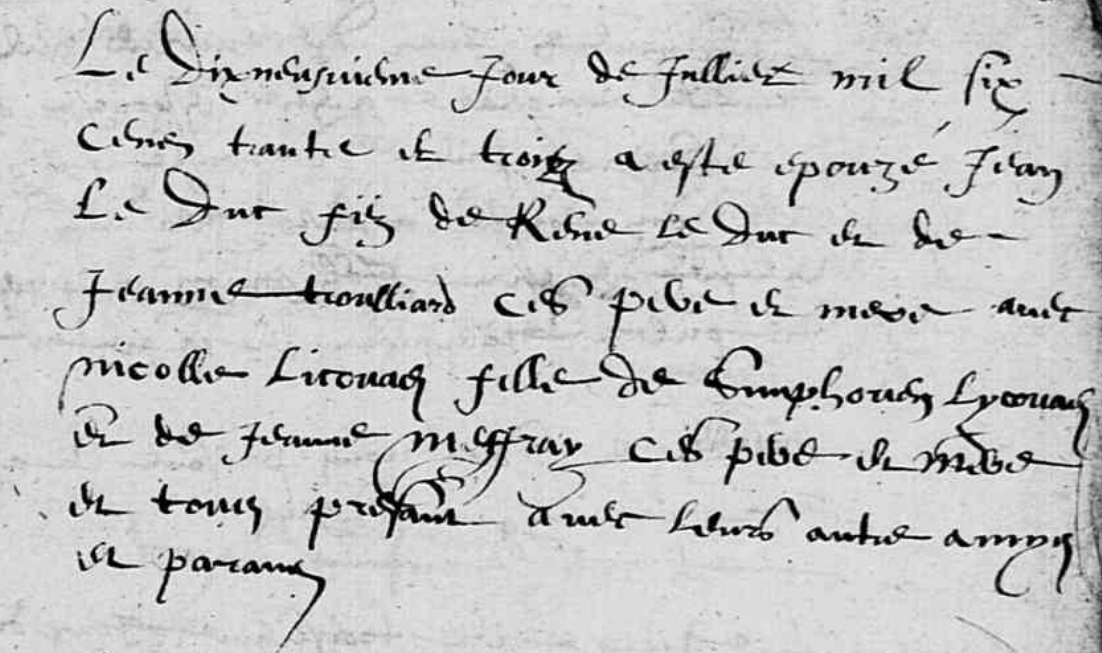 Le Dixneufvieme Jour de Juillet mil six
cens trante et trois a este epouzé Jean
Le Duc filz de Rene Le Duc et de
Jeanne troulliard ces pere et mere avec
nicolle Licouas fille de Simphorien Lycouas
et de Jeanne meffray ces pere et mere
et tous presant avec leurs autre amys
et parans